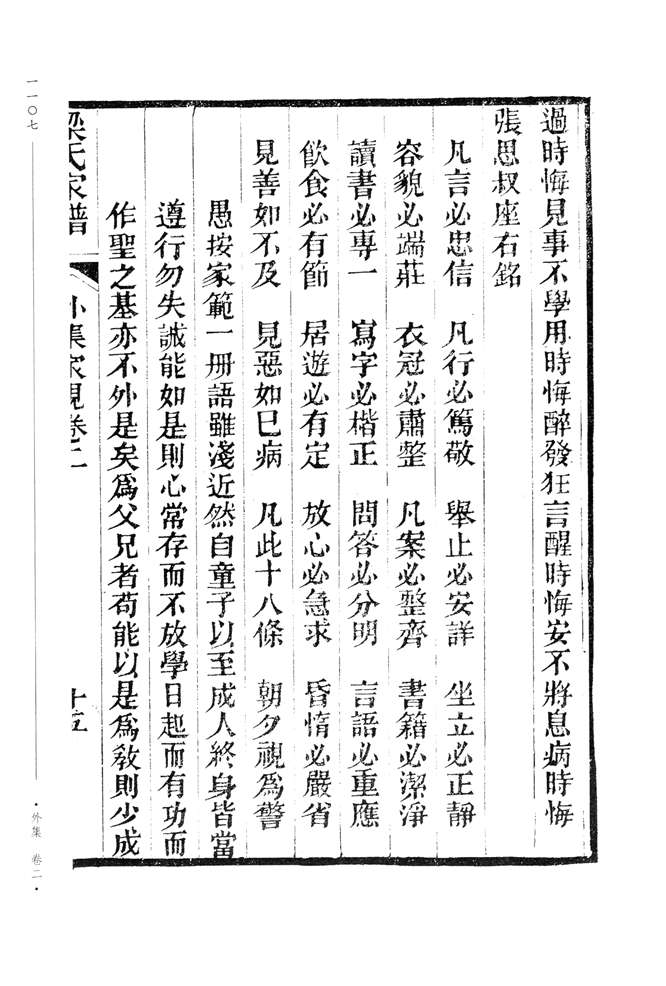 過時悔見事不學用時悔醉發狂言醒時悔安不將息病時悔
張思叔座右銘
凡言必忠信 凡行必篤敬 舉止必安詳 坐立必正靜
容貌必端莊 衣冠必肅整 凡案必整齊 書籍必潔淨
讀書必專一 寫字必楷正 問答必分明 言語必重應
飲食必有節 居遊必有定 放心必急求 昏惰必嚴省
見善如不及 見惡如巳病 凡此十八條 朝夕視爲警
愚按家範一冊語雖淺近然自童子以至成人終身皆當
遵行勿失誠能如是則心常存而不放學日起而有功而
作聖之基亦不外是矣爲父兄者苟能以是爲敎則少成
梁氏家譜 外集家規卷二 十五
一一〇七 ·外集 卷二·